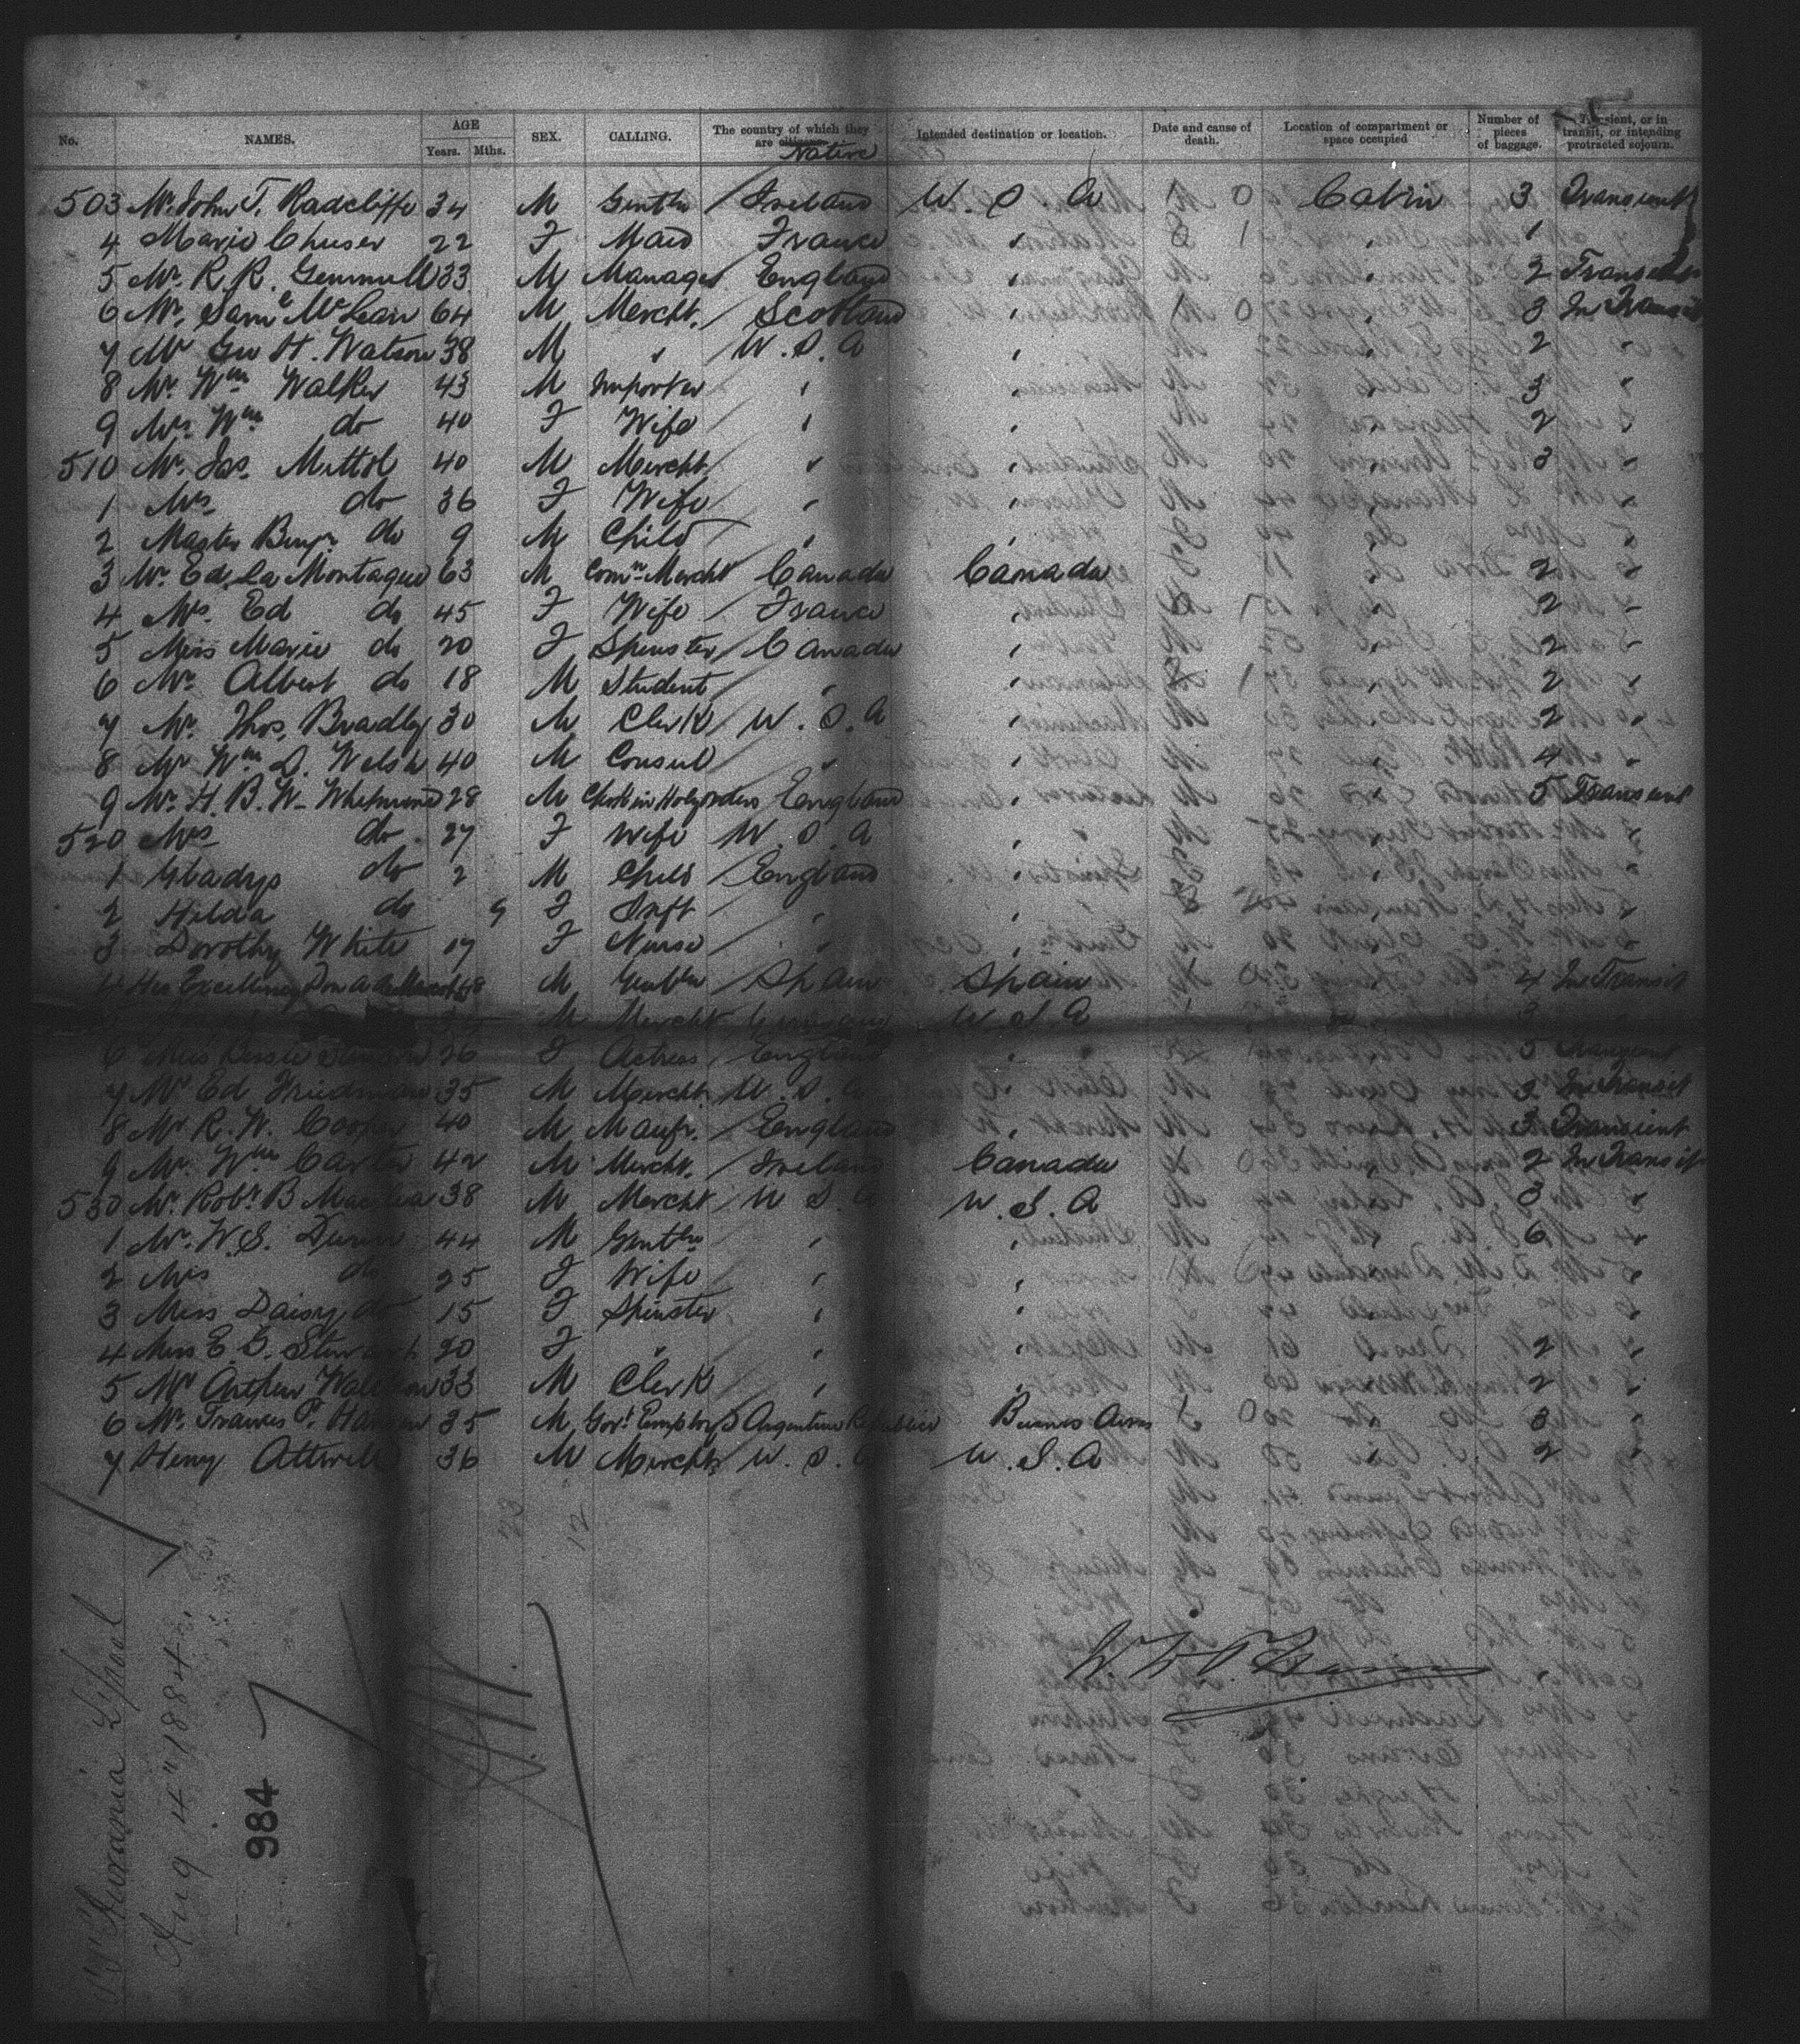 No. NAMES. AGE Years. Mths. SEX. CALLING. The country of which they are citizens. Native Intended destination or location. Date and cause of death. Location of compartment or space occupied Number of pieces of baggage. Transient, or in transit, or intending protracted sojourn.
503 Mr. John T. Radcliffe 34 M Gentln Ireland U. S. A Cabin 3 Transient
4 Marie Chuser 22 F Maid France " " 1
5 Mr. R. R. Gemmell 33 M Manager England " " 2 Transient
6 Mr. Saml McLean 64 M Mercht. Scotland " " 3 In Transit
7 Mr Geo H. Watson 38 M " U. S. A " " 2 "
8 Mr. Wm Walker 43 M Importer " " " 3 "
9 Mrs. Wm do 40 F Wife " " " 2 "
510 Mr. Jas. 40 M Mercht. " " " 3 "
1 Mrs do 36 F Wife " "
2 Master Benjn do 9 M Child " "
3 Mr. Ed. La Montague 63 M Comn Mercht Canada Canada 2 "
4 Mrs. Ed do 45 F Wife France " 2 "
5 Miss Marie do 20 F Spinster Canada " 2 "
6 Mr. Albert do 18 M Student " " 2 "
7 Mr. Thos. Bradley 30 M Clerk U. S. A " 2 "
8 Mr Wm D. Welsh 40 M Consul " " 4 "
9 Mr. H. B. W. 28 M Clerk in Holy orders England " 5 Transient
520 Mrs do 27 F Wife U. S. A "
1 Gladys do 2 M Child England "
2 Hilda do 9 F Inft " "
3 Dorothy White 17 F Nurse " "
4 His Excellency Don A 48 M Gentln Spain Spain 4 In Transit
M Mercht Germany U. S. A 3
6 Miss Bessie 26 F Actress England " 3 Transient
7 Mr Ed Friedman 35 M Mercht. U. S. A " 3 In Transit
8 Mr R. W. Cooper 40 M Manfr. England " 3 Transient
9 Mr. Wm Carter 42 M Mercht. Ireland Canada 2 In Transit
530 Mr. Robt B 38 M Mercht U S A U. S. A 3 "
1 Mr. W. S. Dunn 44 M Gentln " " 6 "
2 Mrs do 25 F Wife " "
3 Miss Daisy do 15 F Spinster " "
4 Miss E. G. Stewart 20 F " " " 2 "
5 Mr Arthur 33 M Clerk " " 2 "
6 Mr. Frances P. 35 M Govt Employ Argentine Republic Buenos Aires 3 "
7 Henry Attwell 36 M Mercht. U. S. A U. S. A 2 "
S.S. Aurania L'pool
Aug. 4" 1884
984